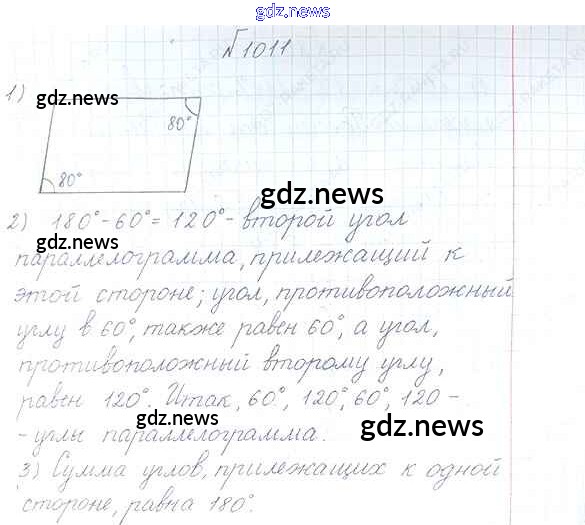 gdz.news
№1011
1)
gdz.news
80°
80°
gdz.news
2) 180°-60°=120°- второй угол
gdz.news
параллелограмма, прилежащий к
этой стороне; угол, противоположный
углу в 60°, также равен 60°, а угол,
противоположный второму углу,
равен 120°. Итак, 60°, 120°, 60°, 120 -
gdz.news
gdz.news
- углы параллелограмма.
3) Сумма углов, прилежащих к одной
стороне, равна 180°.
gdz.news